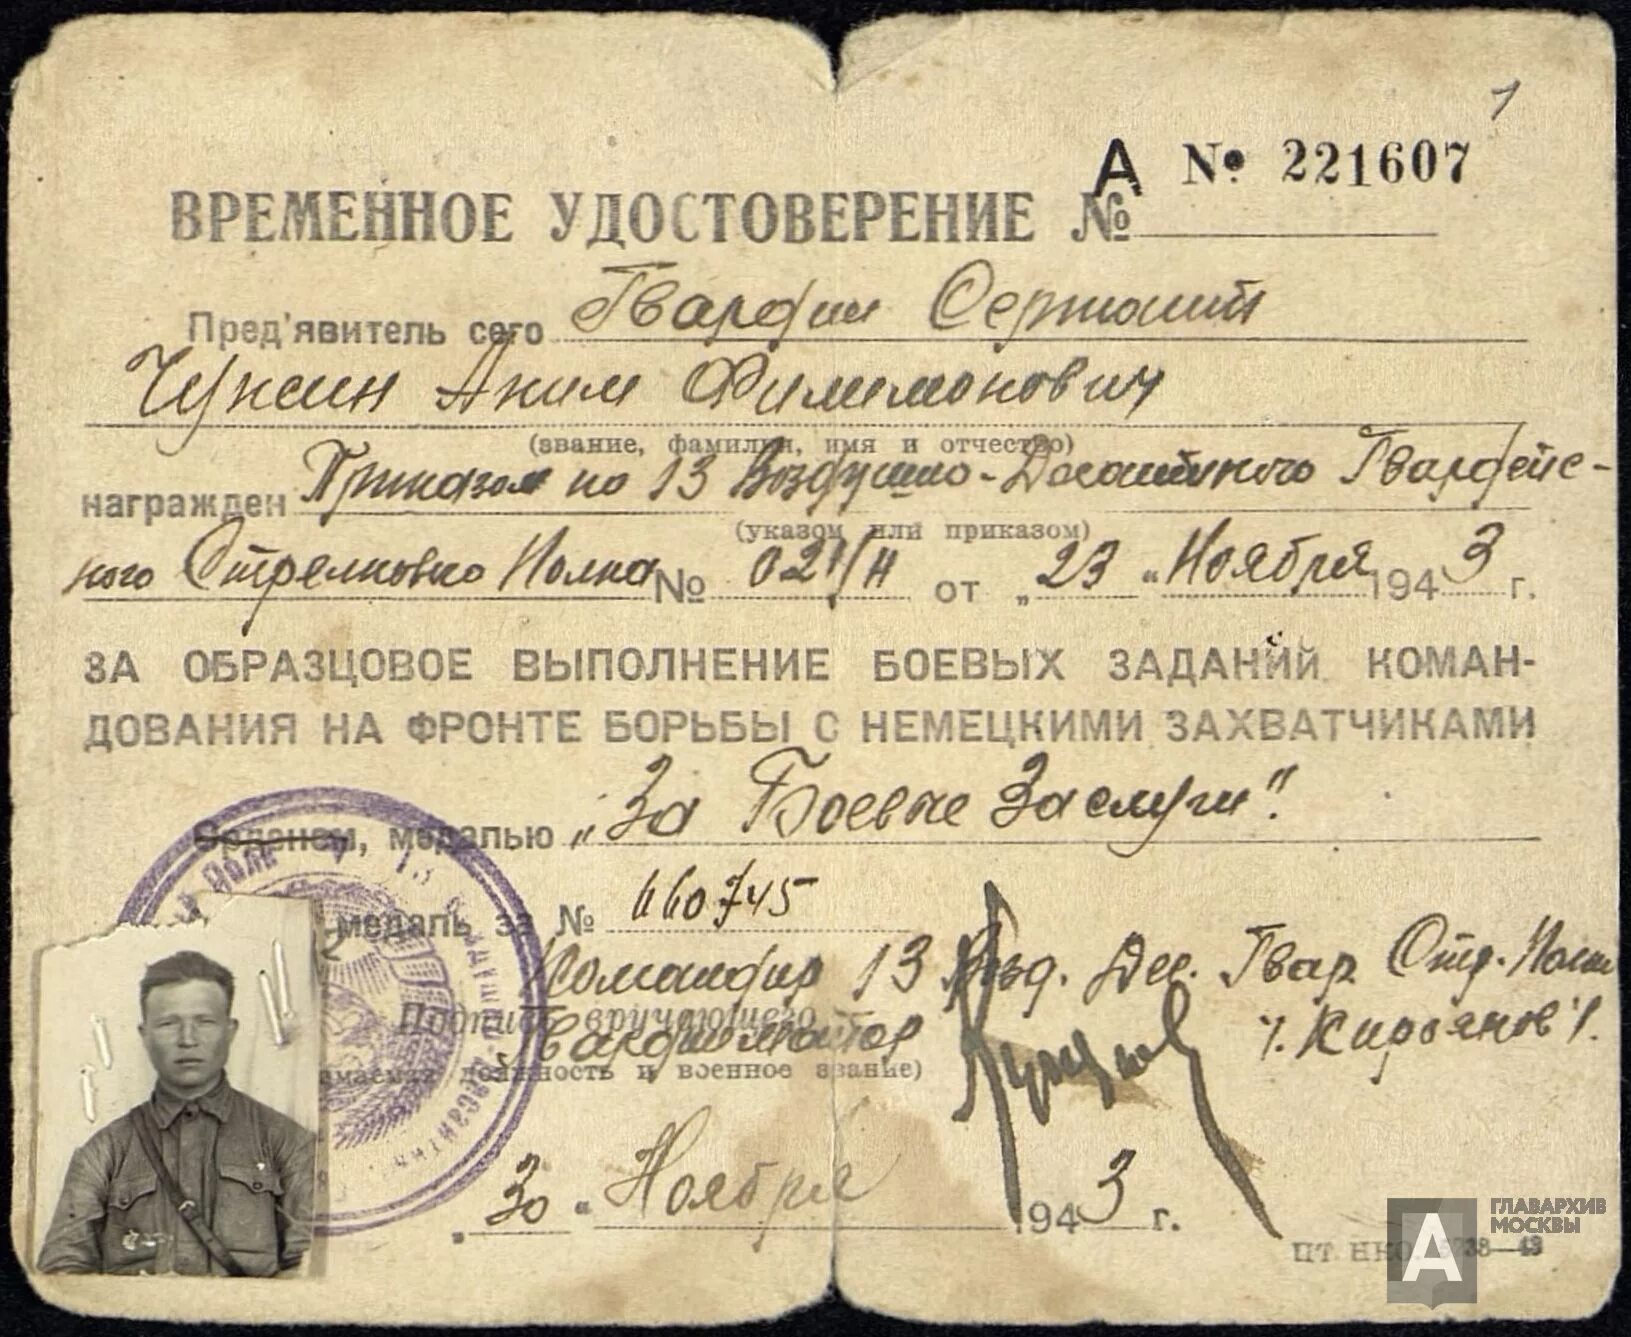 1
А № 221607
ВРЕМЕННОЕ УДОСТОВЕРЕНИЕ №
Пред'явитель сего Гвардии Сержант
Чуксин Аким Филимонович
(звание, фамилия, имя и отчество)
награжден Приказом по 13 Воздушно-Десантного Гвардейс-
(указом или приказом)
кого Стрелкового Полка № 021/н от „23“ Ноября 1943 г.
ЗА ОБРАЗЦОВОЕ ВЫПОЛНЕНИЕ БОЕВЫХ ЗАДАНИЙ КОМАН-
ДОВАНИЯ НА ФРОНТЕ БОРЬБЫ С НЕМЕЦКИМИ ЗАХВАТЧИКАМИ
Орденом, медалью „За Боевые Заслуги".
медаль за № 660745
Командир 13 Возд. Дес. Гвар. Стр. Полка
Подпись вручающего
Гвардии майор /Кирьянов/.
должность и военное звание)
„30“ Ноября 1943 г.
ГЛАВАРХИВ
МОСКВЫ